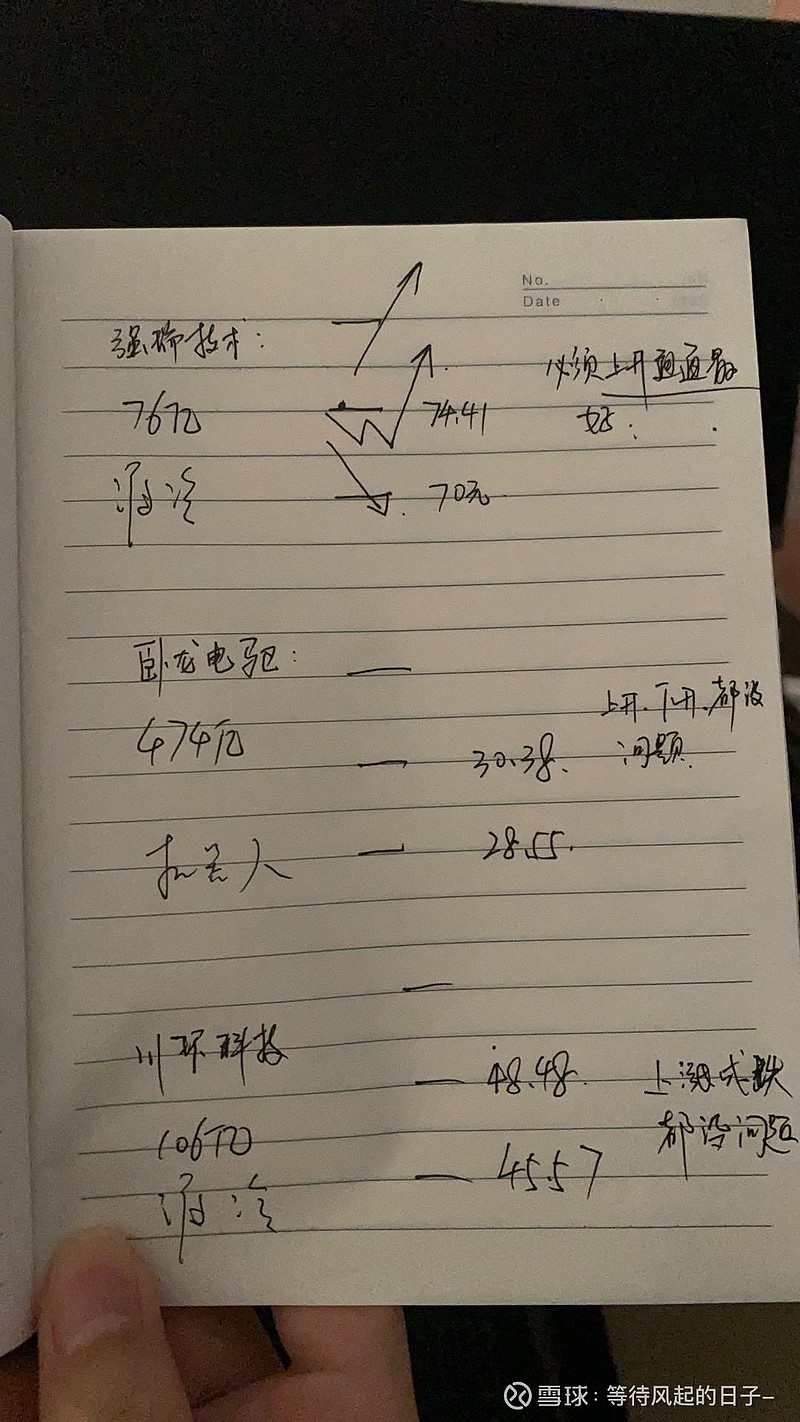 No.
Date
强瑞技术:
76亿
液冷
74.41
70元
必须上开
好:
卧龙电驱:
474亿
机器人
30.38.
28.55.
上开.下开.都没
问题.
川环科技
106亿
液冷
48.48.
45.57
上涨或跌
都没问题
雪球:等待风起的日子-